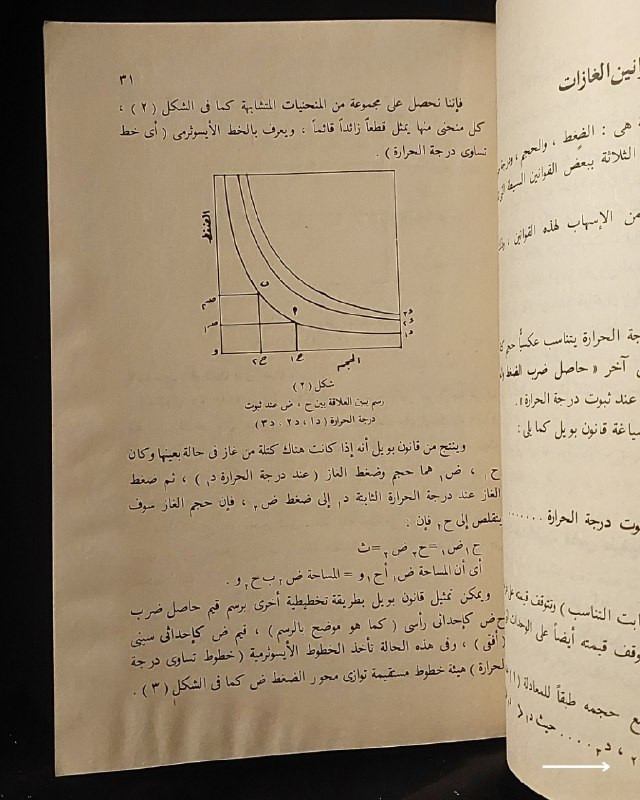 ٣١
فإننا نحصل على مجموعة من المنحنيات المتشابهة كما فى الشكل (٢) ،
كل منحنى منها يمثل قطعاً زائداً قائماً ، ويعرف بالخط الأيسوثرمى ( أى خط
تساوى درجة الحرارة ) .
الضغط
ض٢
ض١
و
ب
أ
د٣
د٢
د١
ح٢
ح١
الحجم
شكل (٢)
رسم يبين العلاقة بين ح ، ض عند ثبوت
درجة الحرارة (د١ ، د٢ ، د٣)
وينتج من قانون بويل أنه إذا كانت هناك كتلة من غاز فى حالة بعينها وكان
ح١ ، ض١ هما حجم وضغط الغاز ( عند درجة الحرارة د١ ) ، ثم ضغط
الغاز عند درجة الحرارة الثابتة د١ إلى ضغط ض٢ ، فإن حجم الغاز سوف
يتقلص إلى ح٢ فإن :
ح١ ض١ = ح٢ ض٢ = ث
أى أن المساحة ض١ أ ح١ و = المساحة ض٢ ب ح٢ و .
ويمكن تمثيل قانون بويل بطريقة تخطيطية أخرى برسم قيم حاصل ضرب
ح ض كإحداثى رأسى ( كما هو موضح بالرسم ) ، قيم ض كإحداثى سينى
( أفقى ) ، وفى هذه الحالة تأخذ الخطوط الأيسوثرمية ( خطوط تساوى درجة
الحرارة ) هيئة خطوط مستقيمة توازى محور الضغط ض كما فى الشكل (٣) .
الغازات
هى : الضغط ، والحجم ،
الثلاثة ببعض القوانين
من الإسهاب لهذه القوانين ،
الحرارة يتناسب عكسياً
آخر « حاصل ضرب الضغط
عند ثبوت درجة الحرارة ».
قانون بويل كما يلى :
درجة الحرارة .......
التناسب ) وتتوقف قيمته على
قيمته أيضاً على الوحدات
حجمه طبقاً للمعادلة (١)